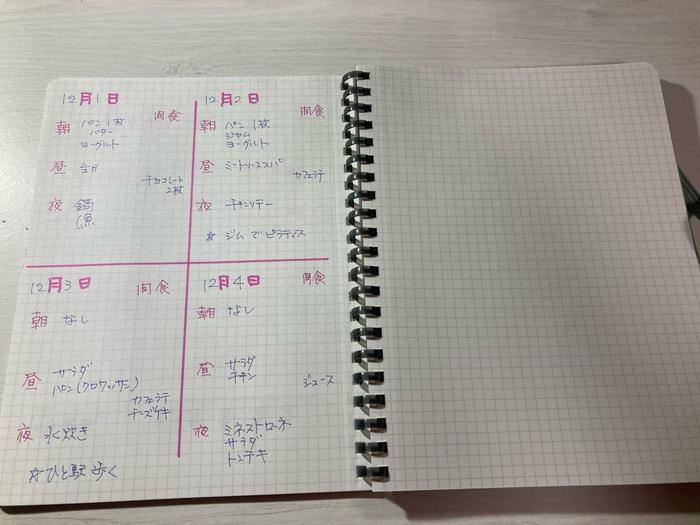 12月1日
間食
朝 パン 1枚
バター
ヨーグルト
昼
チョコレート
2枚
夜 鍋
(魚
12月2日
間食
朝 パン 1枚
ジャム
ヨーグルト
昼 ミートソーススパ
カフェラテ
夜 チキンソテー
☆ ジム で ピラティス
12月3日
間食
朝 なし
昼 サラダ
パン(クロワッサン)
カフェラテ
チーズケーキ
夜 水炊き
☆ひと駅 歩く
12月4日
間食
朝 なし
昼 サラダ
チキン
ジュース
夜 ミネストローネ
サラダ
トンテキ